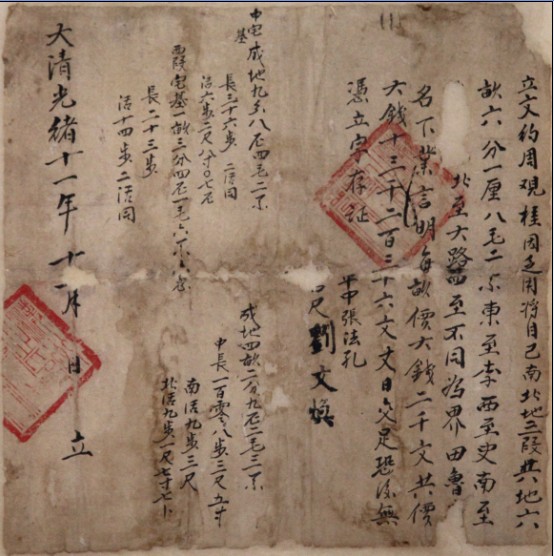 立文約周观桂因乏用將自己南北地三段共地六
畝六分一厘八毛二糸東至李西至史南至
北至大路四至不同為界田魯
名下業言明每畝價大錢二千文共價
大錢十三千二百三十六文丈日交足恐后無
憑立字存证
平中張法孔
劉文煥
中宅基成地九糸八忽四毛二糸
長三十六步二活同
活六步二尺八寸〇七
西段宅基一畝三分四
長二十三步
活十四步二活同
成地四畝二分九厘二毛二糸
中長一百零八步三尺五寸
南活九步三尺
北活九步一尺七寸七卜
大清光緒十一年十一月日立